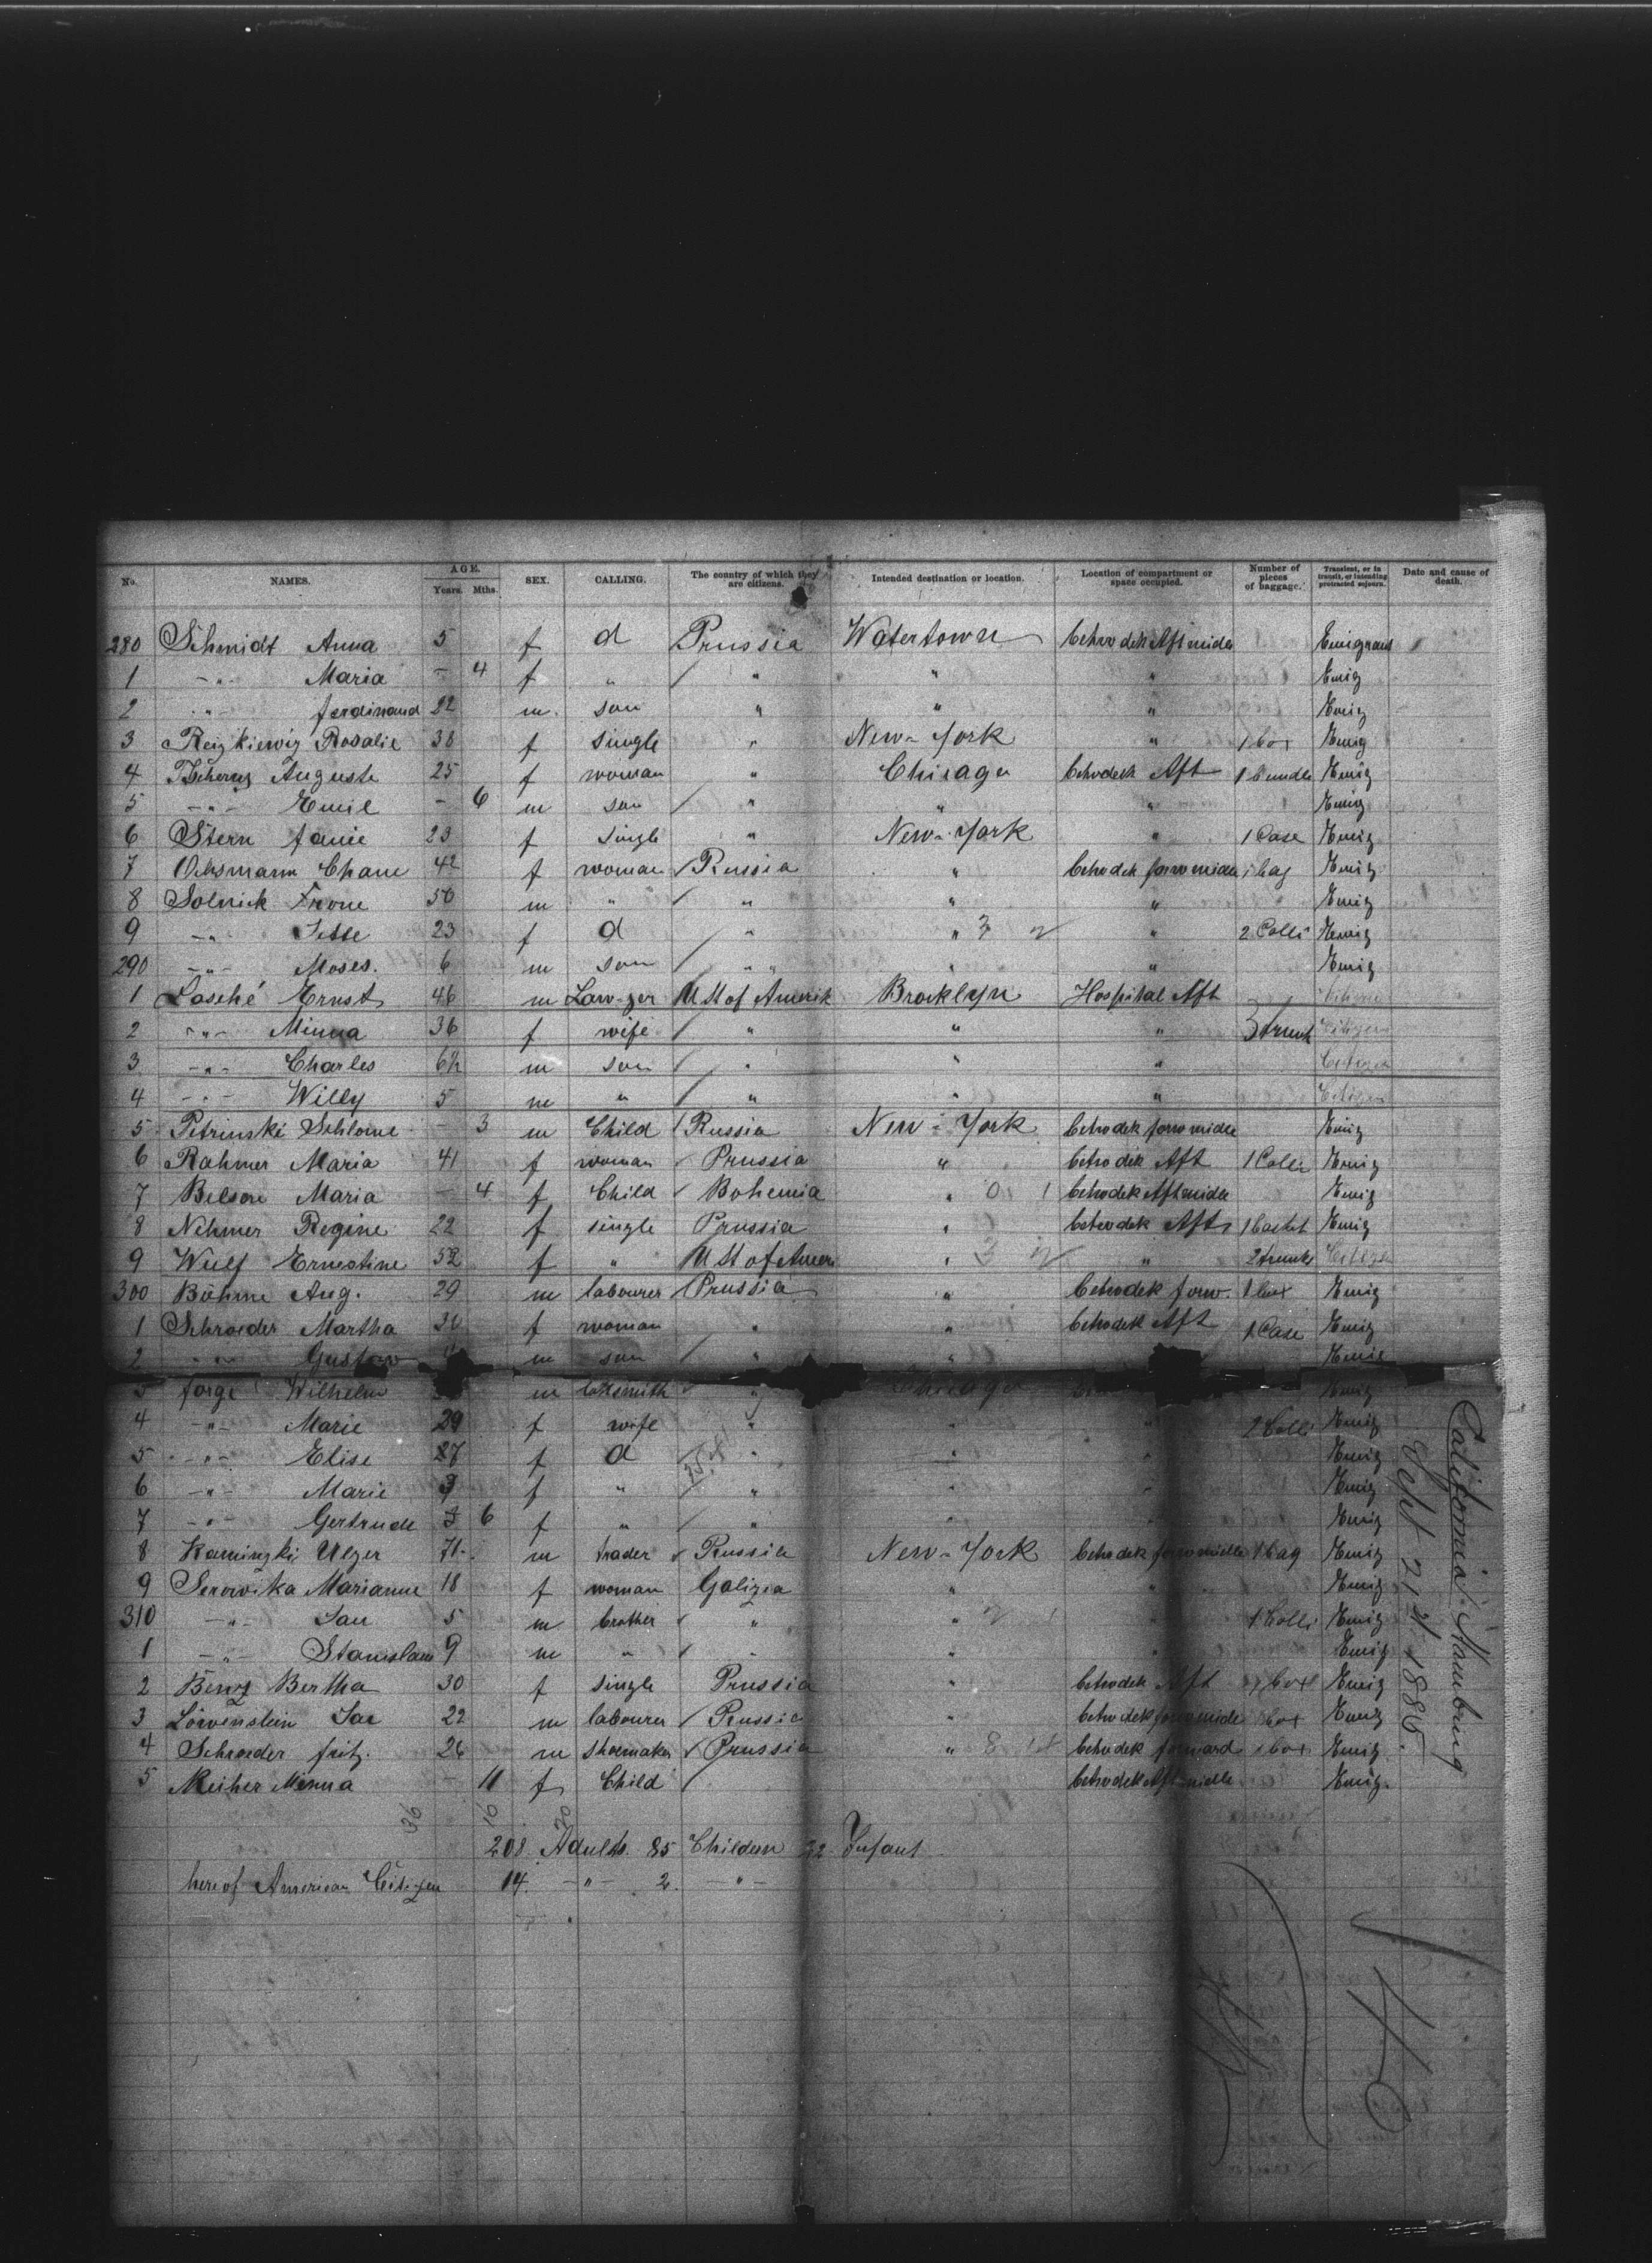 No. NAMES. AGE. Years. Mths. SEX. CALLING. The country of which they are citizens. Intended destination or location. Location of compartment or space occupied. Number of pieces of baggage. Transient, or in transit, or intending protracted sojourn. Date and cause of death.
280 Schmidt Anna 5 f d Prussia Watertown betwdek Aft midle Emigrant
1 -"- Maria - 4 f " / " " " Emig
2 -"- ferdinand 22 m son " " " Emig
3 Reizkiewiz Rosalie 38 f single " New-York " 1 box Emig
4 Auguste 25 f woman " Chicago betwdeck Aft 1 bundle Emig
5 -"- Emil - 6 m son / " " " Emig
6 Stern fanie 23 f single " New-York " 1 Case Emig
7 Ochsmann Chane 42 f woman / Russia " betwdek forw midle 1 bag Emig
8 Solnick 50 m " / " " " Emig
9 -"- Jette 23 f d / " " 3 " 2 Colli Emig
290 -"- Moses. 6 m son / " " " Emig
1 Lasché Ernst 46 m Law-yer U St of Amerik Brooklyn Hospital Aft Citizen
2 -"- Minna 36 f wife / " " " 3 trunk Citizen
3 -"- Charles 6½ m son / " " " Citizen
4 -"- Willy 5 m " / " " " Citizen
5 Petrinski Schlome - 3 m Child / Russia New-York betwdek forw midle Emig
6 Rahmer Maria 41 f woman / Prussia " betwdek Aft 1 Colli Emig
7 Maria - 4 f Child / Bohemia " 0 1 betwdek Aft midle Emig
8 Nehmer Regine 22 f single Prussia " betwdek Aft 1 basket Emig
9 Wulf Ernestine 52 f " U St of Amer " 3 " 2 trunks Citizen
300 Böhme Aug. 29 m labourer / Prussia " betwdek forw. 1 box Emig
1 Schroeder Martha 30 f woman " " betwdek Aft 1 Case Emig
2 -"- Gustav m son / " " Emig
3 forge Wilhelm m loksmith / " Chicago Emig
4 -"- Marie 29 f wife " " " 2 Colli Emig
5 -"- Elise f d / " " " Emig
6 -"- Marie 3 f " / " " " Emig
7 -"- Gertrude 6 f " / " " Emig
8 Kaminzki 71 m trader / Russia New-York betwdek forw midle 1 bag Emig
9 Serowika Marianne 18 f woman Galizia " " Emig
310 -"- Jan 5 m brother / " " 2 1 1 Colli Emig
1 -"- Stanislaus 9 m " / " " Emig
2 Bertha 30 f single Prussia " betwdek Aft 1 box Emig
3 Löwenstein 22 m labourer / Russia " betwdek forw midle 1 box Emig
4 Schroeder fritz. 26 m shoemaker / Prussia " 8 betwdek forward 1 box Emig
5 Meiher Minna - 11 f Child / betwdek Aft midle Emig.
36 16
208. Adults. 85 Children 22 Infant
hereof American Citizen 14. -"- 2. -"-
California Hamburg
Sept 21st 1885.